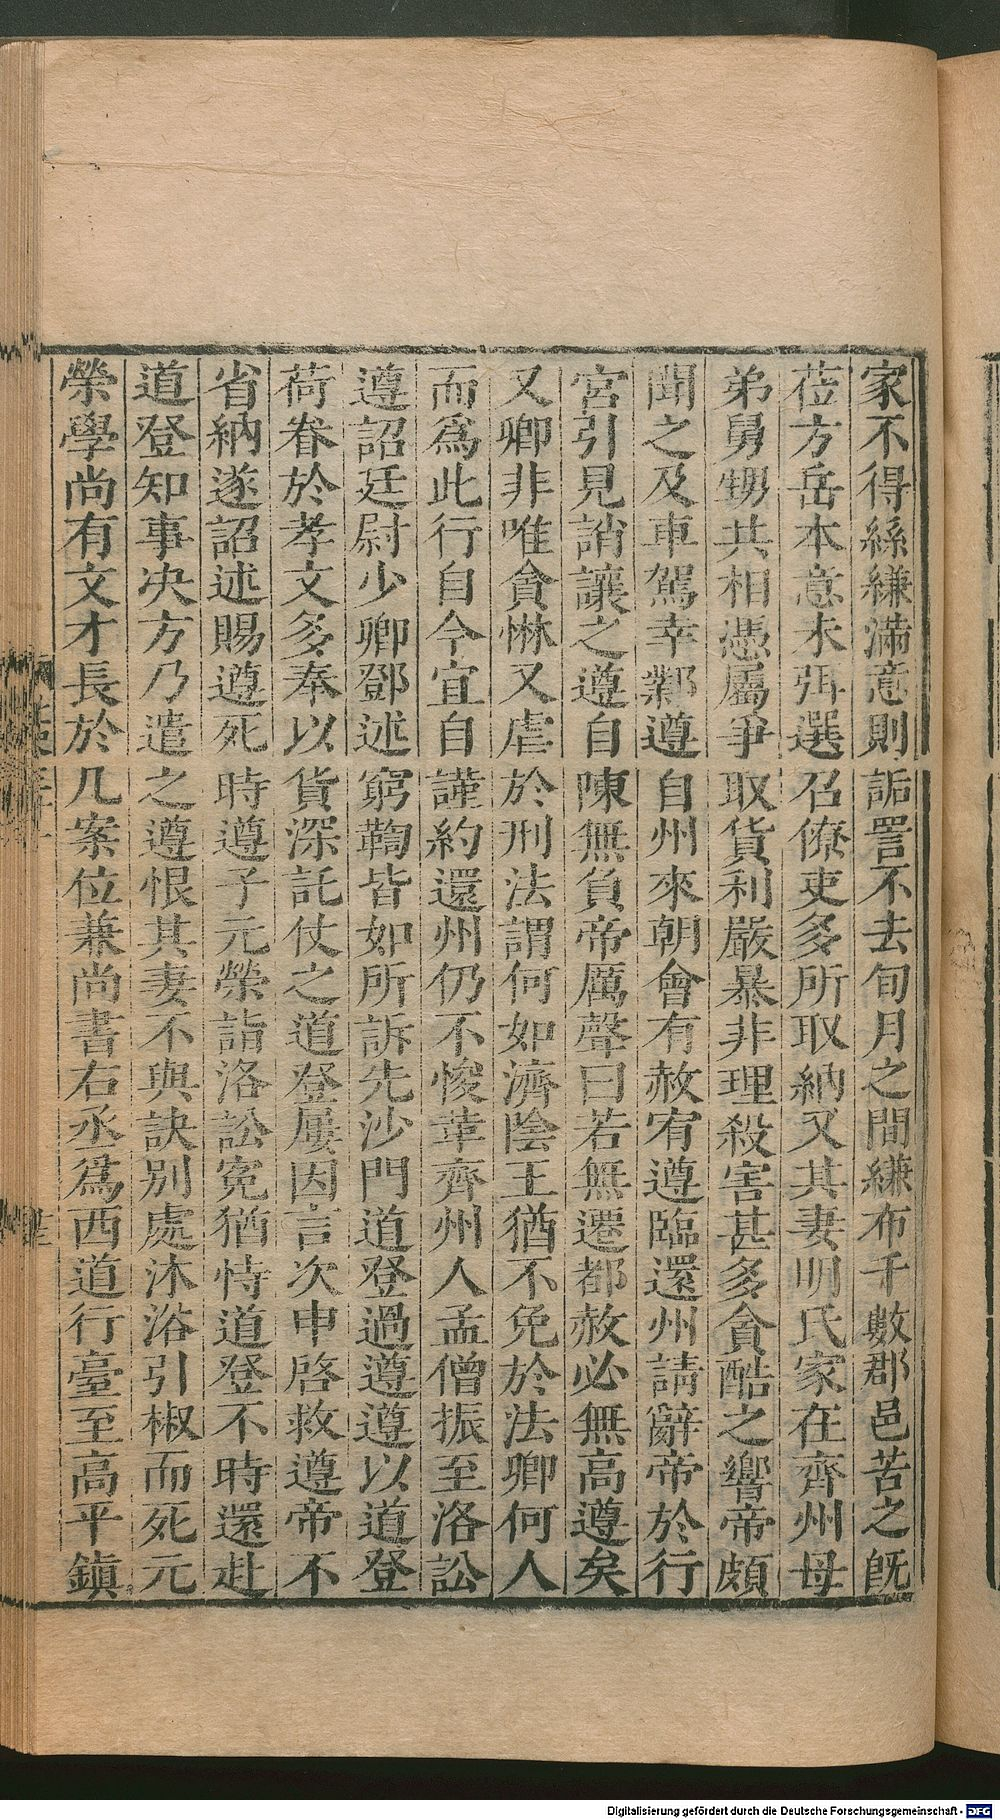 家不得絲縑滿意則詬詈不去旬月之間縑布千數郡邑苦之旣
莅方岳本意未弭選召僚吏多所取納又其妻明氏家在齊州母
弟舅甥共相憑屬爭取貨利嚴暴非理殺害甚多貪酷之響帝頗
聞之及車駕幸鄴遵自州來朝會有赦宥遵臨還州請辭帝於行
宮引見誚讓之遵自陳無負帝厲聲曰若無遷都赦必無高遵矣
又卿非唯貪惏又虐於刑法謂何如濟陰王猶不免於法卿何人
而爲此行自今宜自謹約還州仍不悛革齊州人孟僧振至洛訟
遵詔廷尉少卿鄧述窮鞫皆如所訴先沙門道登過遵遵以道登
荷眷於孝文多奉以貨深託仗之道登屢因言次申啓救遵帝不
省納遂詔述賜遵死時遵子元榮詣洛訟寃猶恃道登不時還赴
道登知事决方乃遣之遵恨其妻不與訣別處沐浴引椒而死元
榮學尚有文才長於几案位兼尚書右丞爲西道行臺至高平鎮
Digitalisierung gefördert durch die Deutsche Forschungsgemeinschaft - DFG